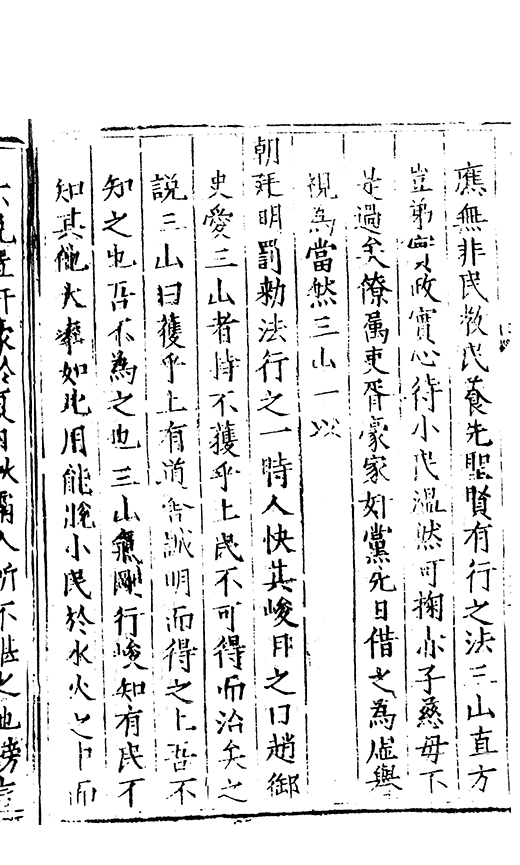 應無非民教民養先聖賢有行之法三山直方
豈弟實政實心待小民温然可掬亦子慈母不
是過矣僚属吏胥豪家奸黨先日借之為虐與
視為當然三山一以
朝廷明罰勑法行之一時人快其峻目之曰趙御
史愛三山者持不獲乎上民不可得而治矣之
説三山曰獲乎上有道舍誠明而得之上吾不
知之也吾不為之也三山氣剛行峻知有民不
知其他大率如此用能脱小民於水火之中而